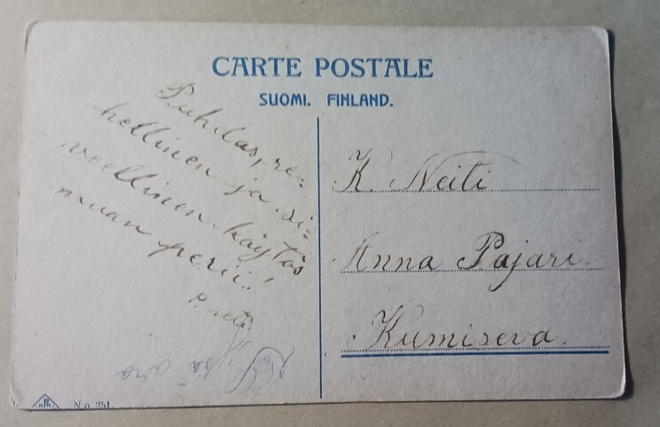 CARTE POSTALE
SUOMI. FINLAND.
Puhdas, re-
hellinen ja si-
veellinen käytös
maan perii!
K. Neiti
Anna Pajari.
Kumiseva.
No 251